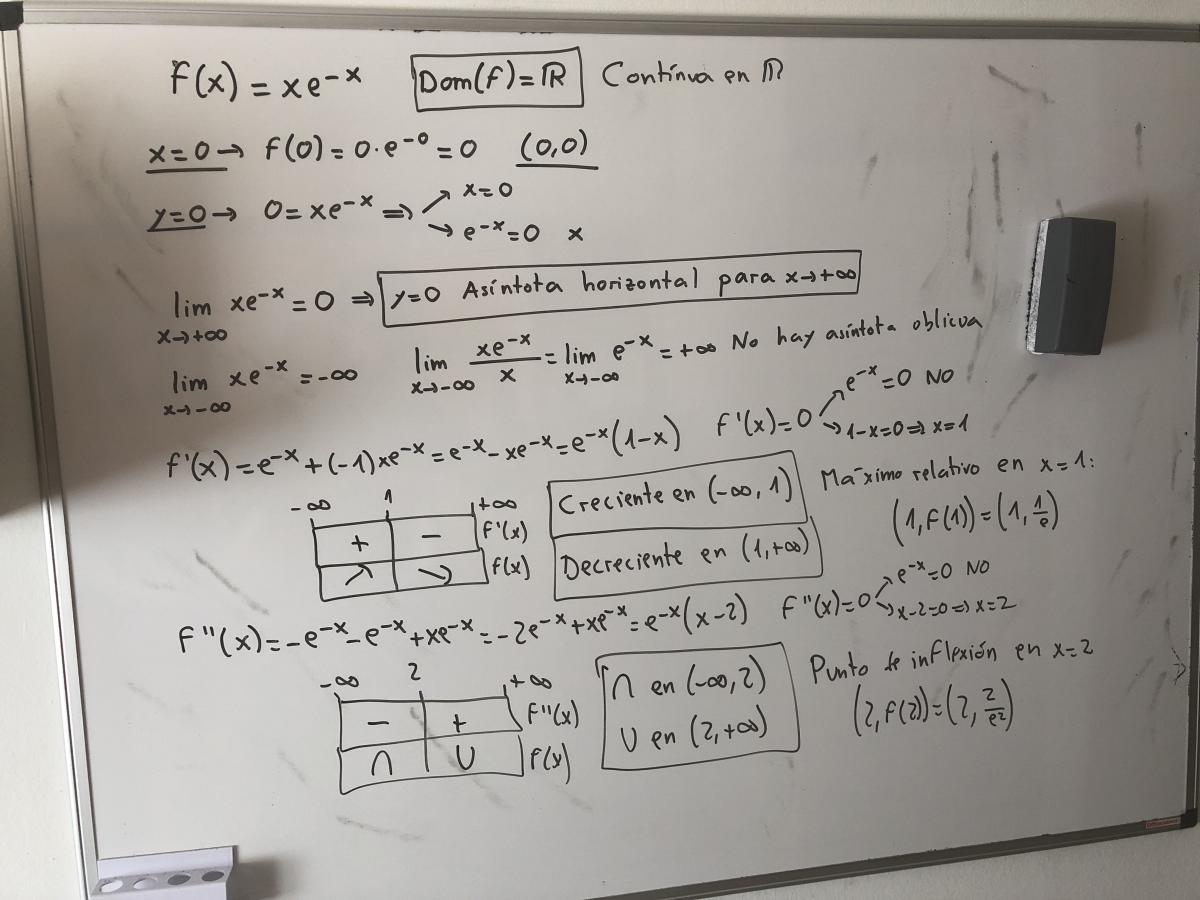 f(x) = xe^-x Dom(f)=ℝ Contínua en ℝ
x=0 → f(0)=0·e^-0=0 (0,0)
y=0 → 0=xe^-x ⇒ ↗ x=0
↘ e^-x=0 x
lim x→+∞ xe^-x=0 ⇒ y=0 Asíntota horizontal para x→+∞
lim x→-∞ xe^-x=-∞ lim x→-∞ xe^-x/x = lim x→-∞ e^-x=+∞ No hay asíntota oblicua
f'(x)=e^-x+(-1)xe^-x=e^-x-xe^-x=e^-x(1-x) f'(x)=0 ↗ e^-x=0 NO
↘ 1-x=0⇒x=1
-∞ 1 +∞
+ - f'(x)
↗ ↘ f(x)
Creciente en (-∞,1)
Decreciente en (1,+∞)
Máximo relativo en x=1:
(1,f(1))=(1,1/e)
f''(x)=-e^-x-e^-x+xe^-x=-2e^-x+xe^-x=e^-x(x-2) f''(x)=0 ↗ e^-x=0 NO
↘ x-2=0⇒x=2
-∞ 2 +∞
- + f''(x)
∩ ∪ f(x)
∩ en (-∞,2)
∪ en (2,+∞)
Punto de inflexión en x=2
(2,f(2))=(2,2/e²)